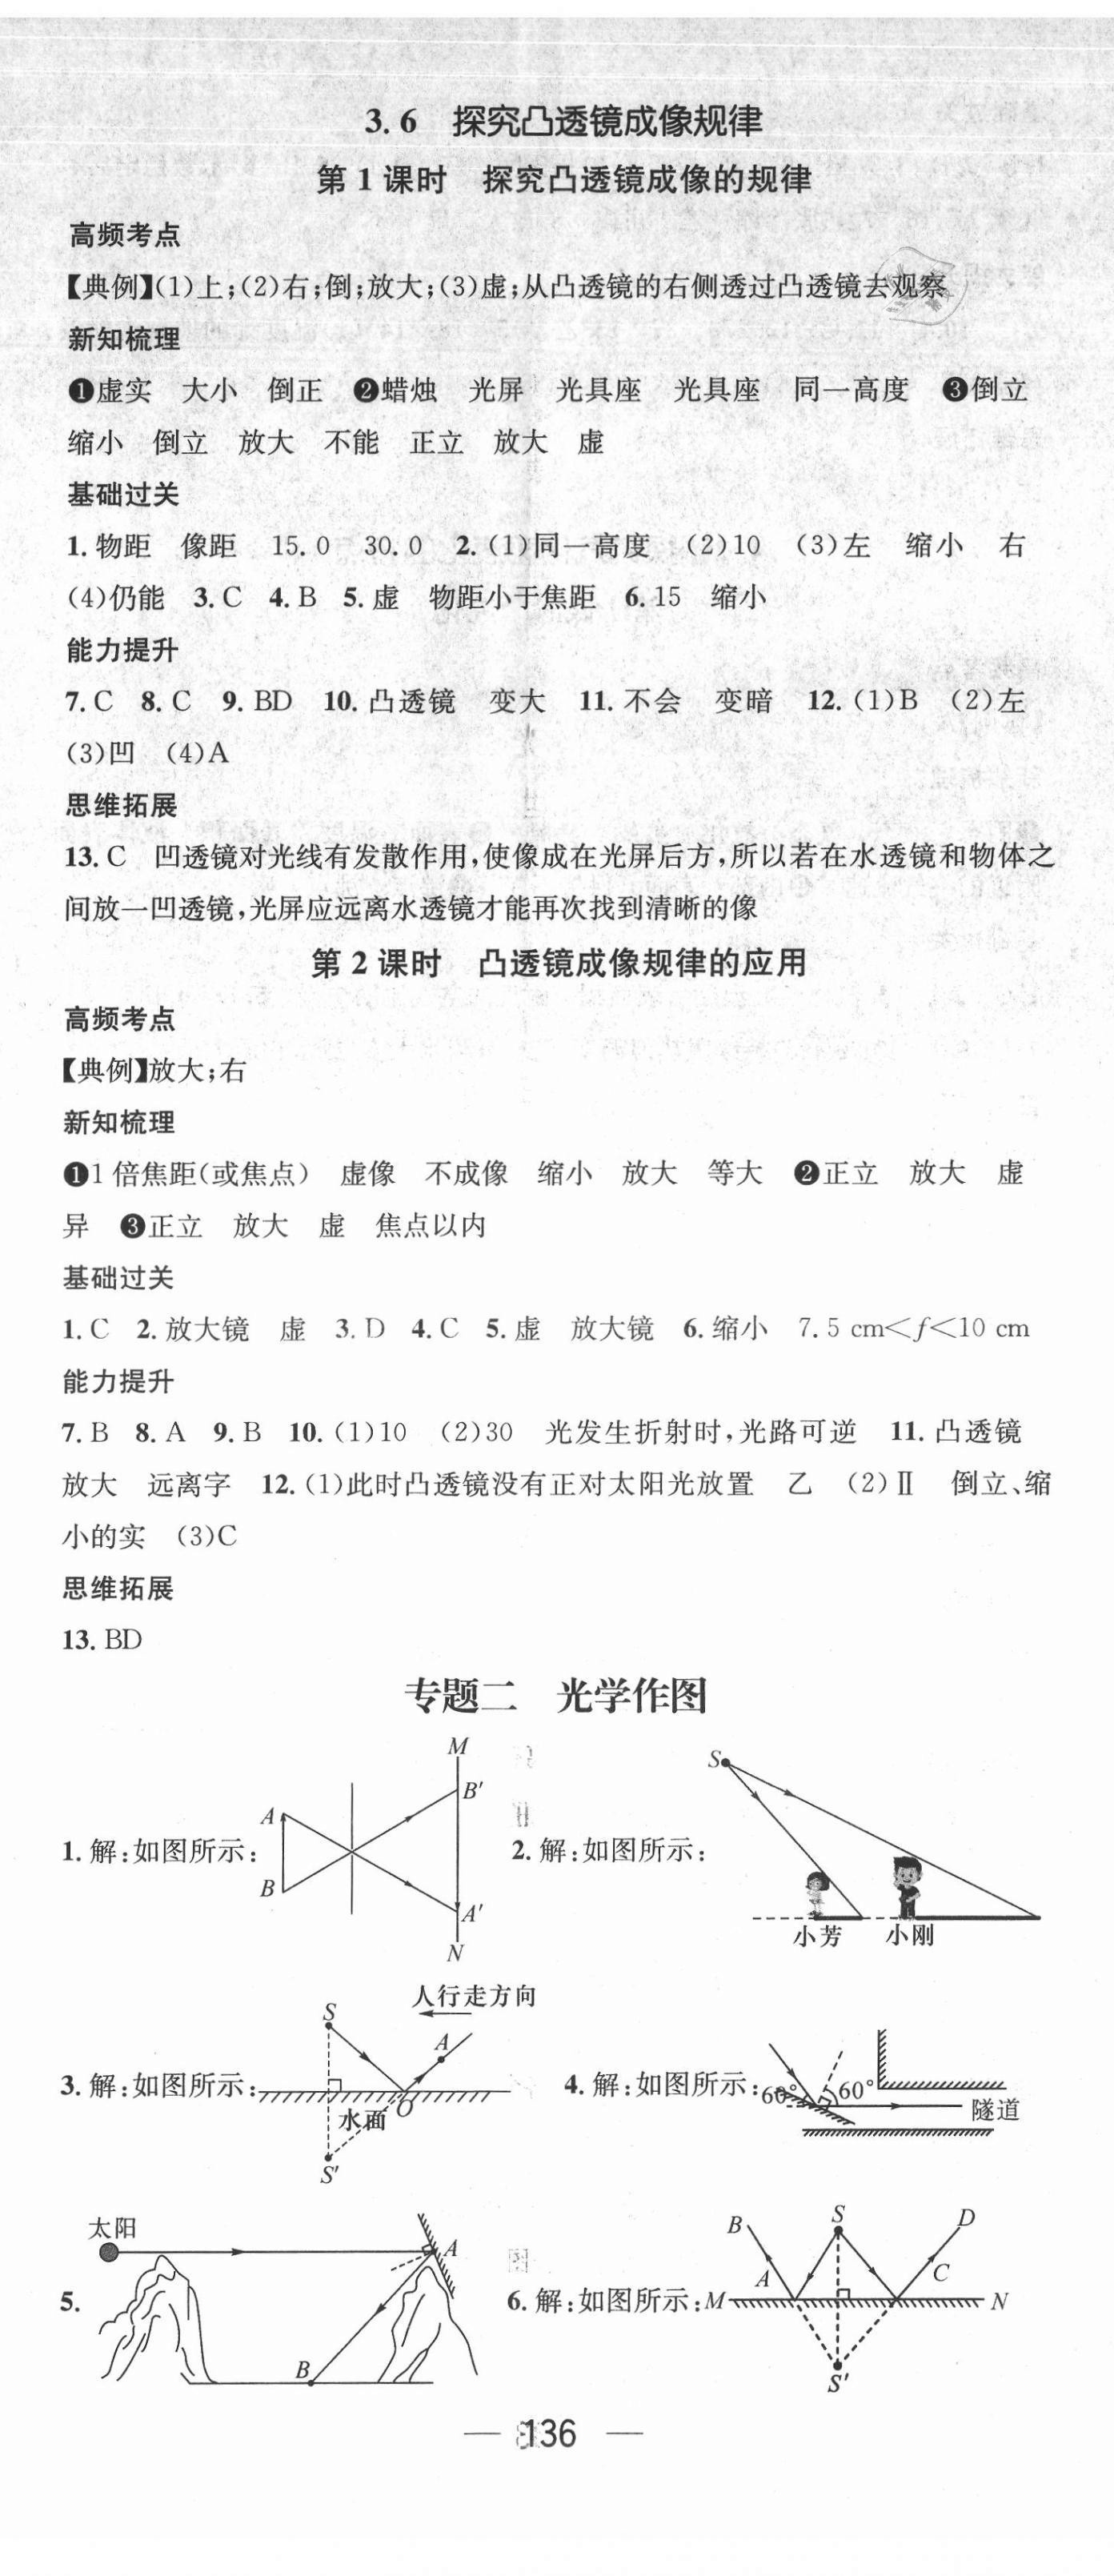 3.6 探究凸透镜成像规律
第1课时 探究凸透镜成像的规律
高频考点
【典例】(1)上;(2)右;倒;放大;(3)虚;从凸透镜的右侧透过凸透镜去观察
新知梳理
❶虚实 大小 倒正 ❷蜡烛 光屏 光具座 光具座 同一高度 ❸倒立
缩小 倒立 放大 不能 正立 放大 虚
基础过关
1.物距 像距 15.0 30.0 2.(1)同一高度 (2)10 (3)左 缩小 右
(4)仍能 3.C 4.B 5.虚 物距小于焦距 6.15 缩小
能力提升
7.C 8.C 9.BD 10.凸透镜 变大 11.不会 变暗 12.(1)B (2)左
(3)凹 (4)A
思维拓展
13.C 凹透镜对光线有发散作用,使像成在光屏后方,所以若在水透镜和物体之
间放一凹透镜,光屏应远离水透镜才能再次找到清晰的像
第2课时 凸透镜成像规律的应用
高频考点
【典例】放大;右
新知梳理
❶1倍焦距(或焦点) 虚像 不成像 缩小 放大 等大 ❷正立 放大 虚
异 ❸正立 放大 虚 焦点以内
基础过关
1.C 2.放大镜 虚 3.D 4.C 5.虚 放大镜 6.缩小 7.5 cm<f<10 cm
能力提升
7.B 8.A 9.B 10.(1)10 (2)30 光发生折射时,光路可逆 11.凸透镜
放大 远离字 12.(1)此时凸透镜没有正对太阳光放置 乙 (2)Ⅱ 倒立、缩
小的实 (3)C
思维拓展
13.BD
专题二 光学作图
1.解:如图所示:
M
B'
A
B
A'
N
2.解:如图所示:
S
小芳 小刚
3.解:如图所示:
人行走方向
S
A
水面
O
S'
4.解:如图所示:
60°
60°
隧道
5.
太阳
A
B
6.解:如图所示:
B
S
D
A
C
M
N
S'
— 136 —